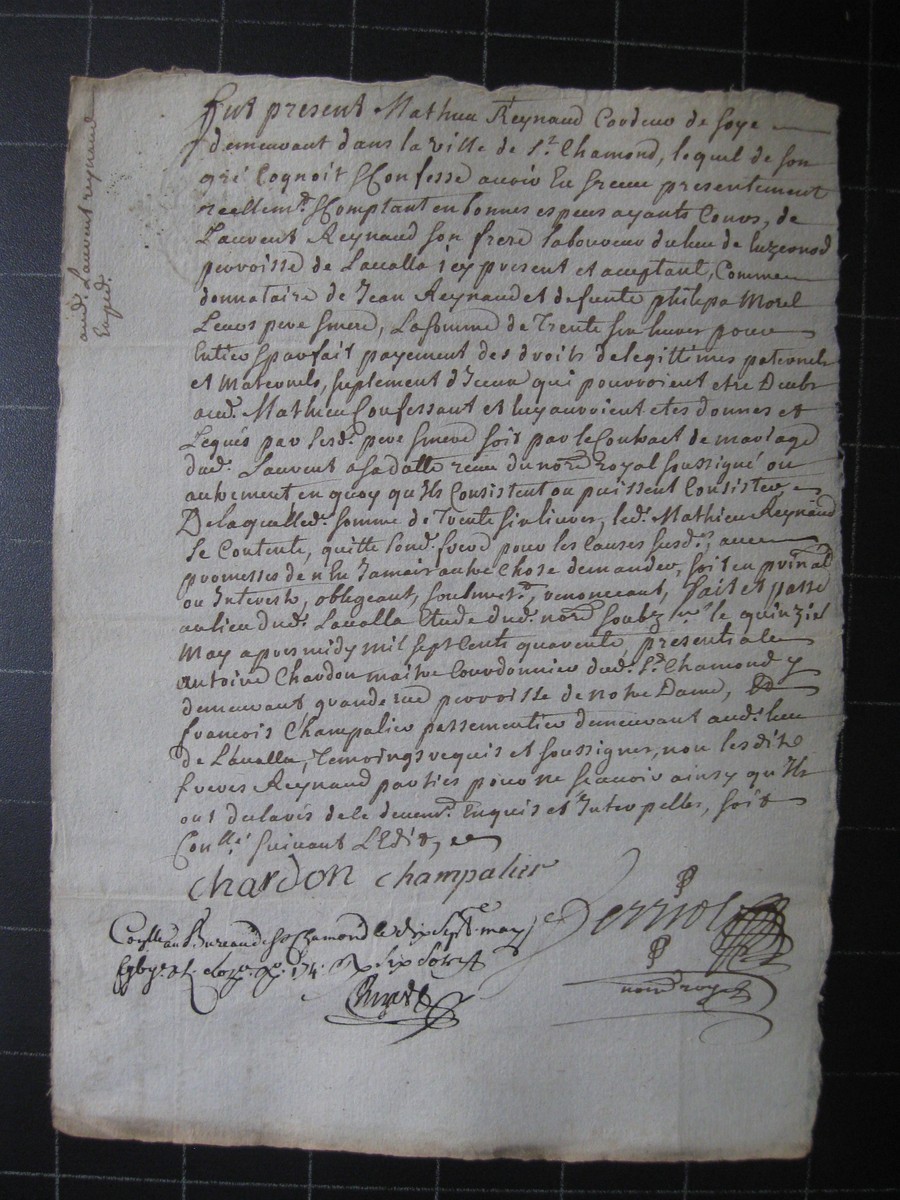 aud. Laurent reynaud
Exped.
Fut present Mathieu Reynaud Cordeur de soye
demeurant dans la ville de St. Chamond, lequel de son
gré Cognoit & Confesse avoir Eu & receu presentement
reellemt. & Comptant en bonnes especes ayants Cours, de
Laurent Reynaud son frere laboureur du lieu de luzernod
perroisse de Lavalla icy present et aceptant, Comme
donnataire de Jean Reynaud et defunte philipa Morel
Leurs pere & mere, La somme de Trente six livres pour
Entier & parfait payement des droits de legittimes paternels
et Maternels, suplement d'Iceux qui pourroient etre Deubs
aud. Mathieu Confessant et luy auroient etes donnes et
Legués par lesd. pere & mere soit par le Contract de mariage
dud. Laurent a sa datte receu du nore. royal soussigné ou
autrement en quoy qu'Ils Consistent ou puissent Consister,
De laquelle d. somme de Trente six livres, led. Mathieu Reynaud
se Contente, quitte sond. frere pour les Causes susd., avec
promesses de n'En Jamais autre Chose demander, soit en prinal
ou Interests, obligeant, soulmett., renonceant, fait et passé
au lieu dud. Lavalla Etude dud. nore. soubz. le quinzie
May apres midy mil sept Cents quarente, presents a ce
Antoine Chardon maitre Courdonnier dud. St. Chamond y
demeurant grande rue perroisse de notre Dame, &
françois Champalier passementier demeurant aud. lieu
de Lavalla, Temoings requis et soussignes, non lesdits
freres Reynaud parties pour ne sçavoir ainsy qu'Ils
ont declarés de ce deuemt. Enquis et Interpelles, soit
Conllé suivant L'Edit,
Chardon Champalier
Perriol
Conllé au Bureau de St. Chamond le dix sept may
174. Rx six sols
nore. royal